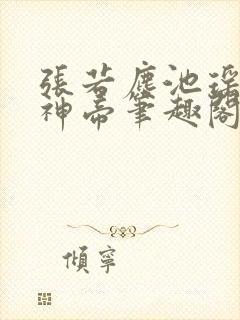 張若塵池瑤
神帝筆趣閣
傾寧